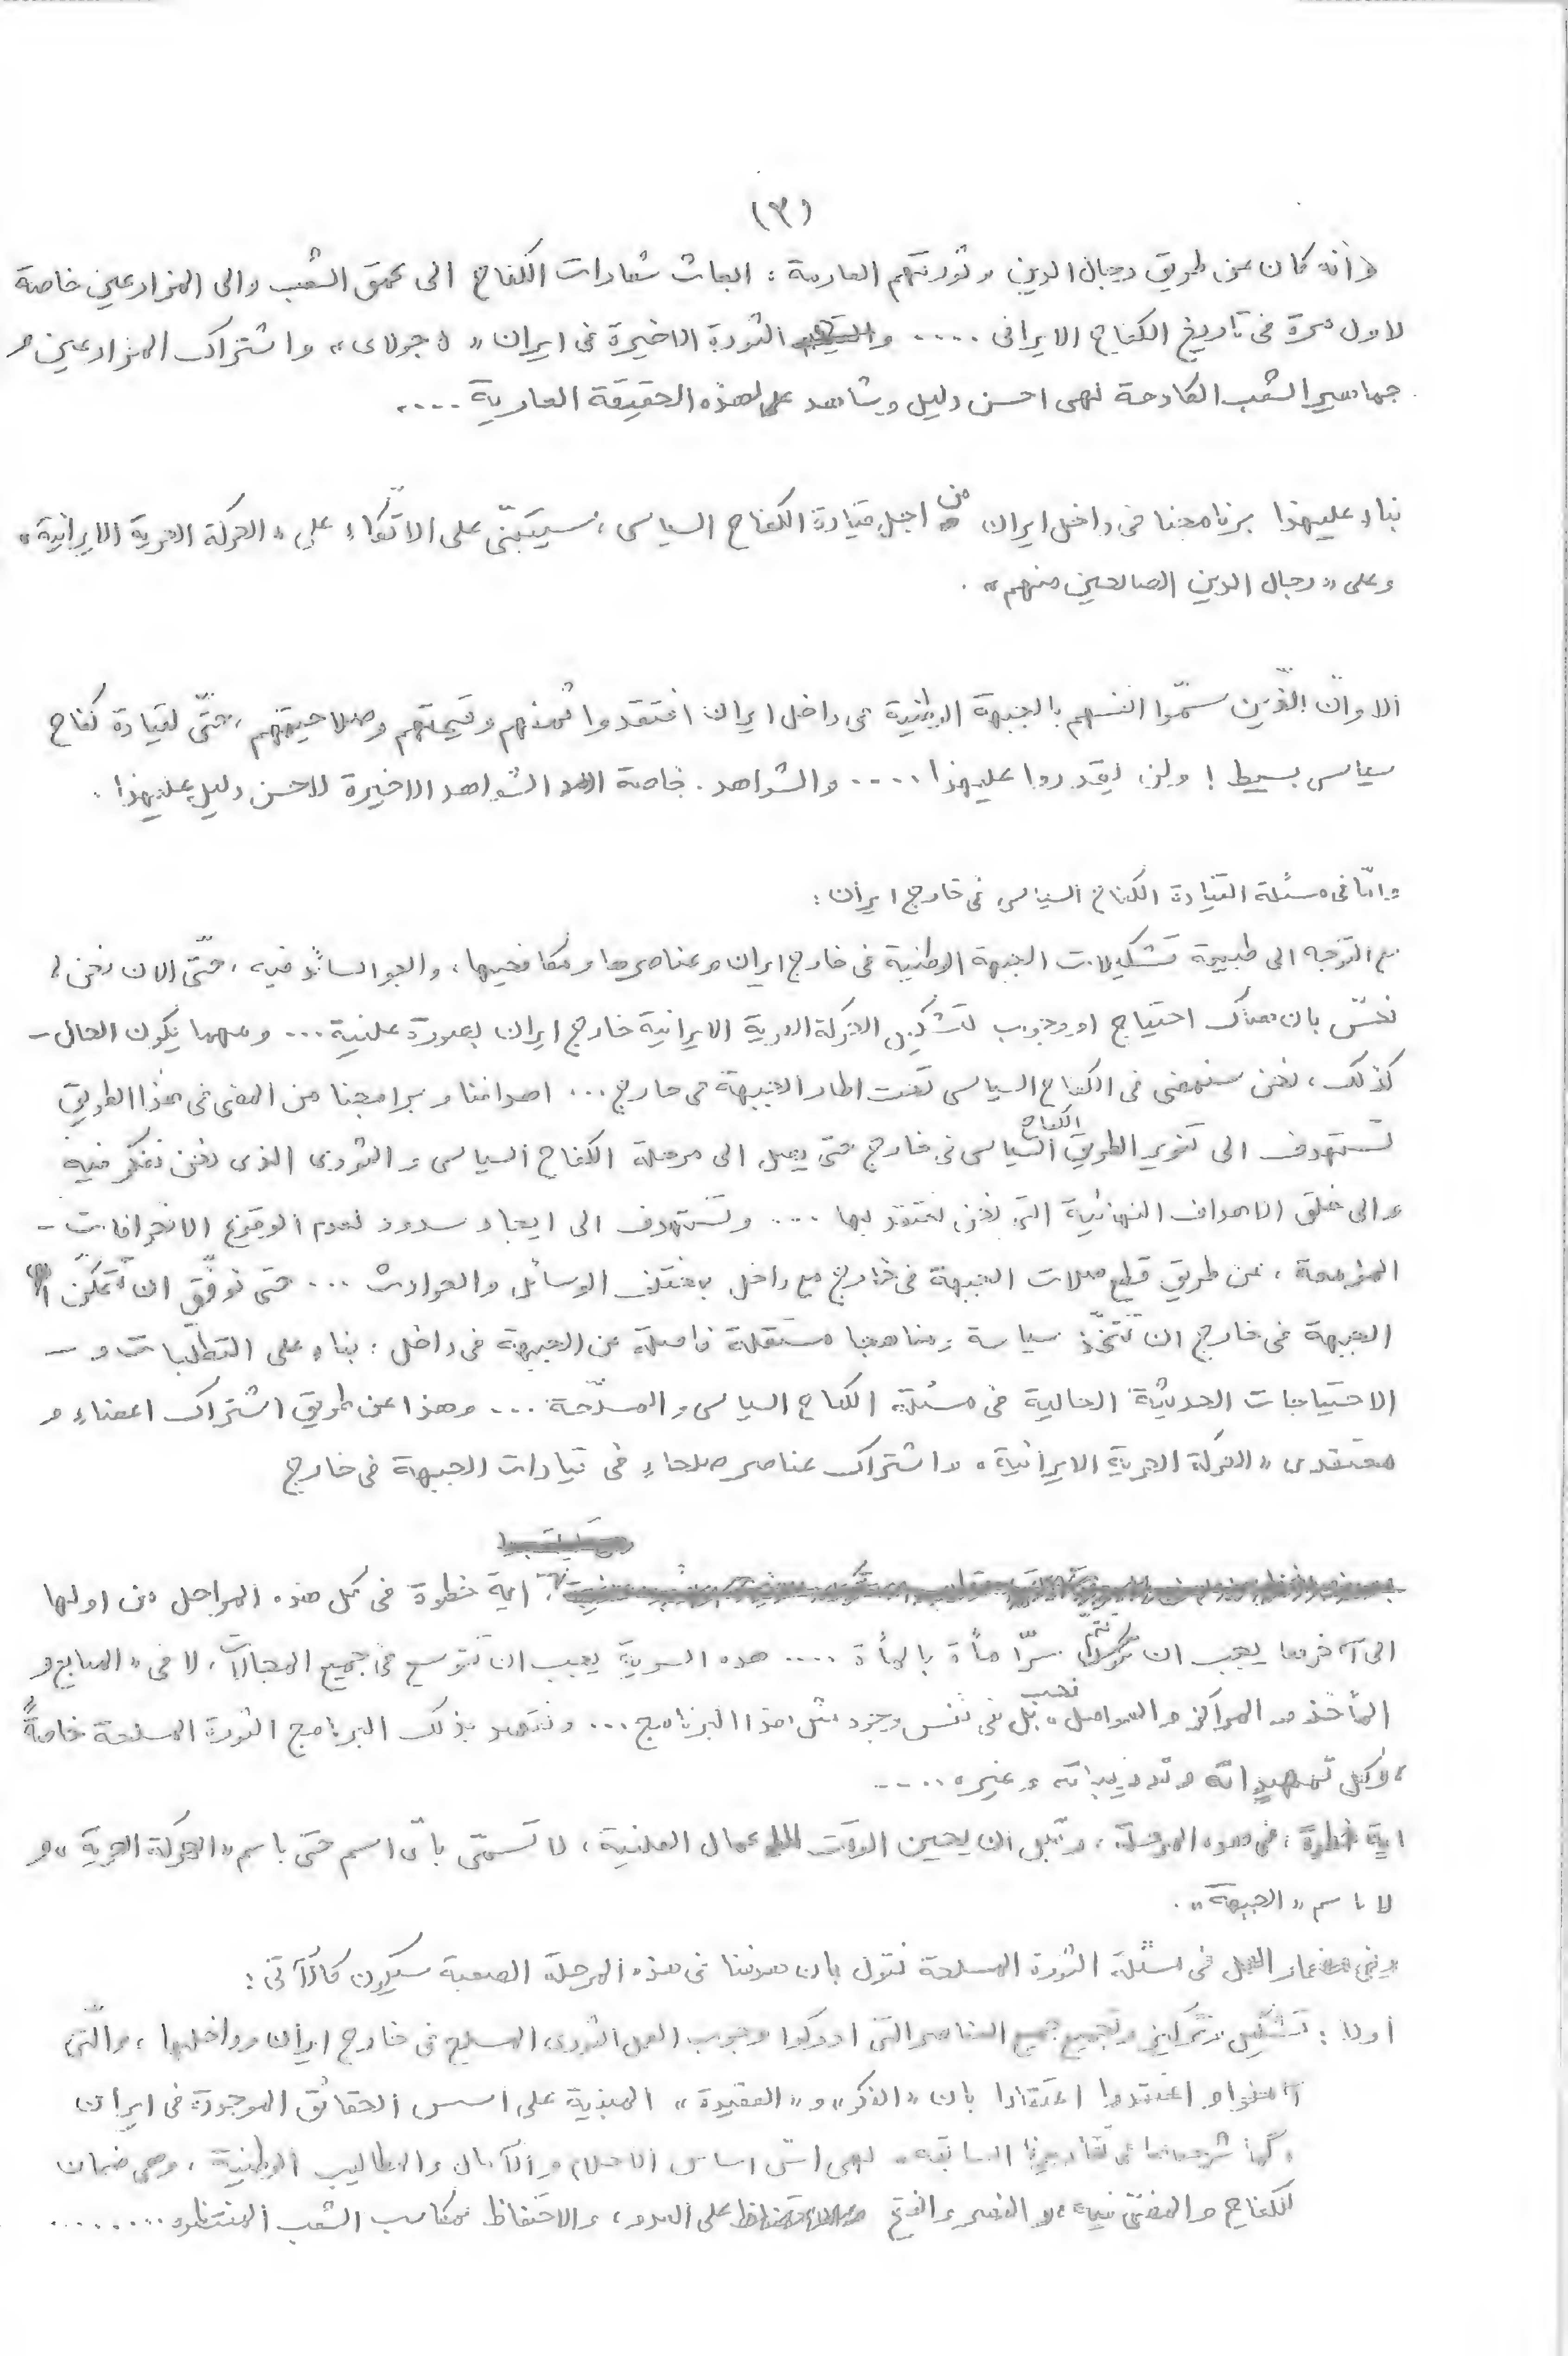 (٣)
وانه كان عن طريق رجال الدين وثورتهم العارمة : انبعاث شعارات الكفاح الى عمق الشعب والى المزارعين خاصة
لاول مرة فى تاريخ الكفاح الايرانى .... و الثورة الاخيرة فى ايران « ٥ جولاى » واشتراك المزارعين و
جماهير الشعب الكادحة لهى احسن دليل وشاهد على لهذه الحقيقة العارية ....
بناء عليهذا برنامجنا فى داخل ايران من اجل قيادة الكفاح السياسى ، سيتبنّى على الاتّكاء على « الحركة الحرية الايرانية »
وعلى « رجال الدين الصالحين منهم » .
الا وانّ الّذين سمّوا انفسهم بالجبهة الوطنية فى داخل ايران افتقدوا ثمنهم وقيمتهم وصلاحيتهم ، حتّى لقيادة كفاح
سياسى بسيط ! ولن يقدروا عليهذا .... والشواهد . خاصة الشواهد الاخيرة لاحسن دليل عليهذا .
وامّا فى مسئلة القيادة الكفاح السياسى فى خارج ايران :
مع التوجه الى طبيعة تشكيلات الجبهة الوطنية فى خارج ايران وعناصرها ومكافحيها ، والجو السائد فيه ، حتّى الان نحن لا
نحسّ بان هناك احتياج او وجوب لتشكيل الحركة الحرية الايرانية خارج ايران بصورة علنية ... ومهما يكون الحال -
كذلك ، نحن سنمضى فى الكفاح السياسى تحت اطار الجبهة فى خارج ... اهدافنا و برامجنا من المضى فى هذا الطريق
تستهدف الى تنوير الطريق الكفاح السياسى فى خارج حتى يصل الى مرحلة الكفاح السياسى و الثورى الذى نحن نفكر فيه
والى خلق الاهداف النهائية التى نحن نعتقد بها .... وتستهدف الى ايجاد سدود لعدم الوقوع الانحرافات -
المزعجة ، عن طريق قطع صلات الجبهة فى خارج مع داخل بمختلف الوسائل والحوادث ... حتى نوفّق ان تتمكّن
الجبهة فى خارج ان تتّخذ سياسة ومناهجا مستقلة فاصلة عن الجبهة فى داخل : بناء على التطلّبات و -
الاحتياجات الحديثة الحالية فى مسئلة الكفاح السياسى و المسلّحة ... وهذا عن طريق اشتراك اعضاء و
معتقدى « الحركة الحرية الايرانية » واشتراك عناصر صلحاء فى قيادات الجبهة فى خارج
اية خطوة فى كل هذه المراحل من اولها
الى آخرها يجب ان تتم سرّا مأة بالمأة .... هذه السرية يجب ان تتوسع فى جميع المجالات ، لا فى « المنابع و
المأخذ و المراكز و العوامل » فحسب بل فى نفس وجود مثل هذا البرنامج ... ونقصد بذلك البرنامج الثورة المسلحة خاصةً
، وكل تمهيداته وتدريباته وغيره .....
اية خطوة ، فى هذه المرحلة ، وقبل ان يحين الوقت للاعمال العلنية ، لا تسمّى بأى اسم حتى باسم « الحركة الحرية » و
لا باسم « الجبهة » .
وفى مضمار العمل فى مسئلة الثورة المسلحة نقول بان هدفنا فى هذه المرحلة الصعبة سيكون كالآتى :
اولا : تشكيل وتمركيز وتجميع جميع العناصر التى ادركوا وجوب العمل الثورى المسلح فى خارج ايران وداخلها ، والّتى
آمنوا و اعتقدوا اعتقادا بان « الفكر » و « العقيدة » المبنية على اسس الحقائق الموجودة فى ايران
، كما شرحناها فى تقاريرنا السابقة . لهى اسّ اساس الاحلام و الآمال والمطاليب الوطنية ، وهى ضمان
الكفاح و المضىّ فيه ، و النصر و الفتح على العدو ، والاحتفاظ بمكاسب الشعب المنتظره .........